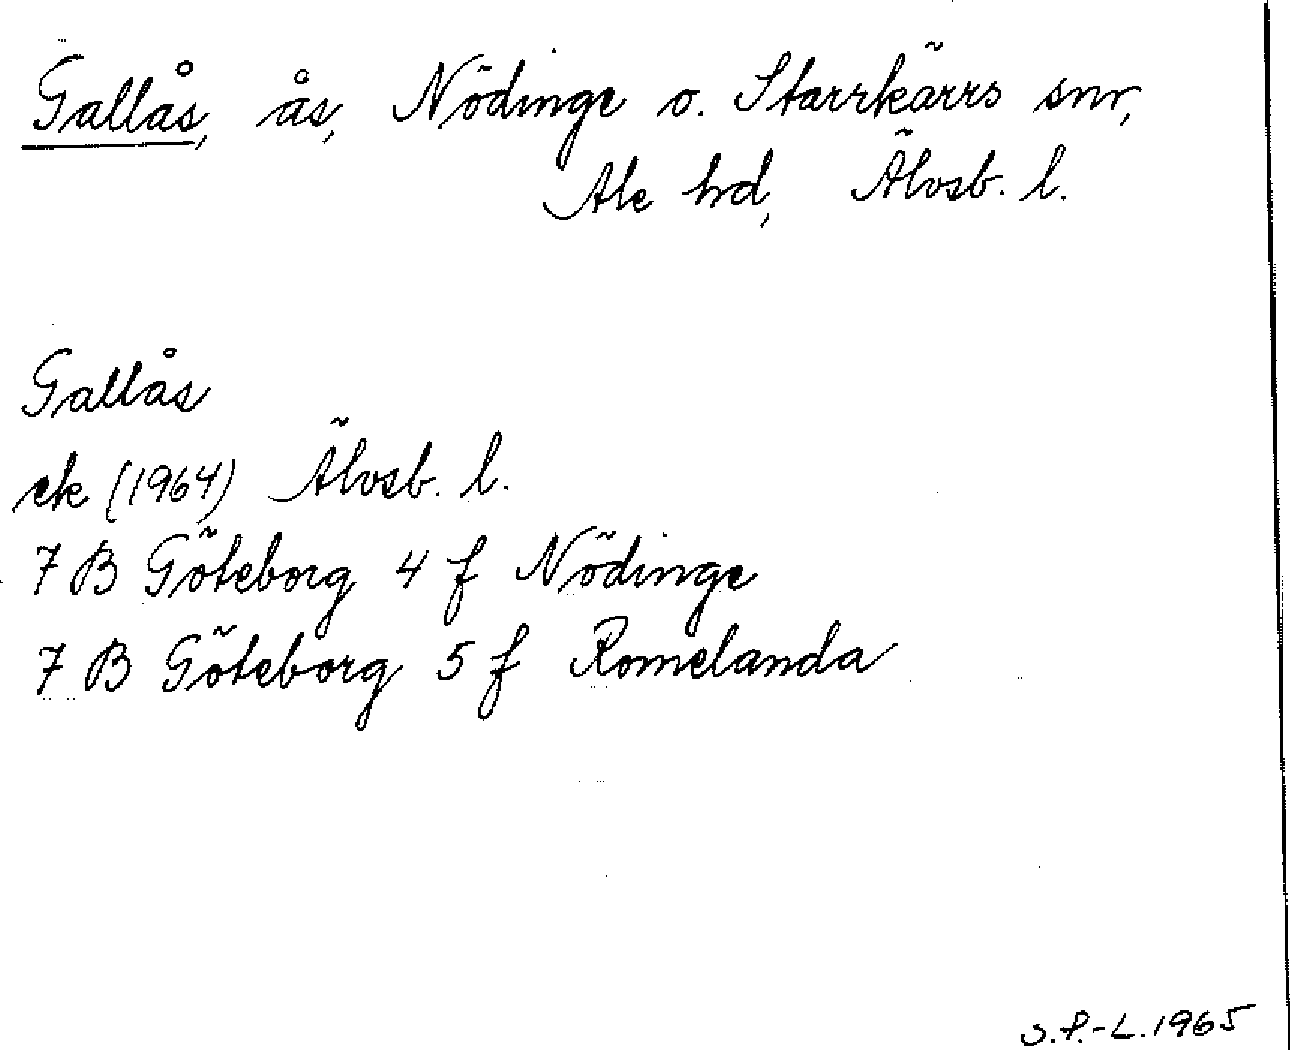 Gallås, ås, Nödinge o. Starrkärrs snr,
Ale hd, Älvsb. l.
Gallås
ek (1964) Älvsb. l.
7 B Göteborg 4 f Nödinge
7 B Göteborg 5 f Romelanda
S.P.-L. 1965